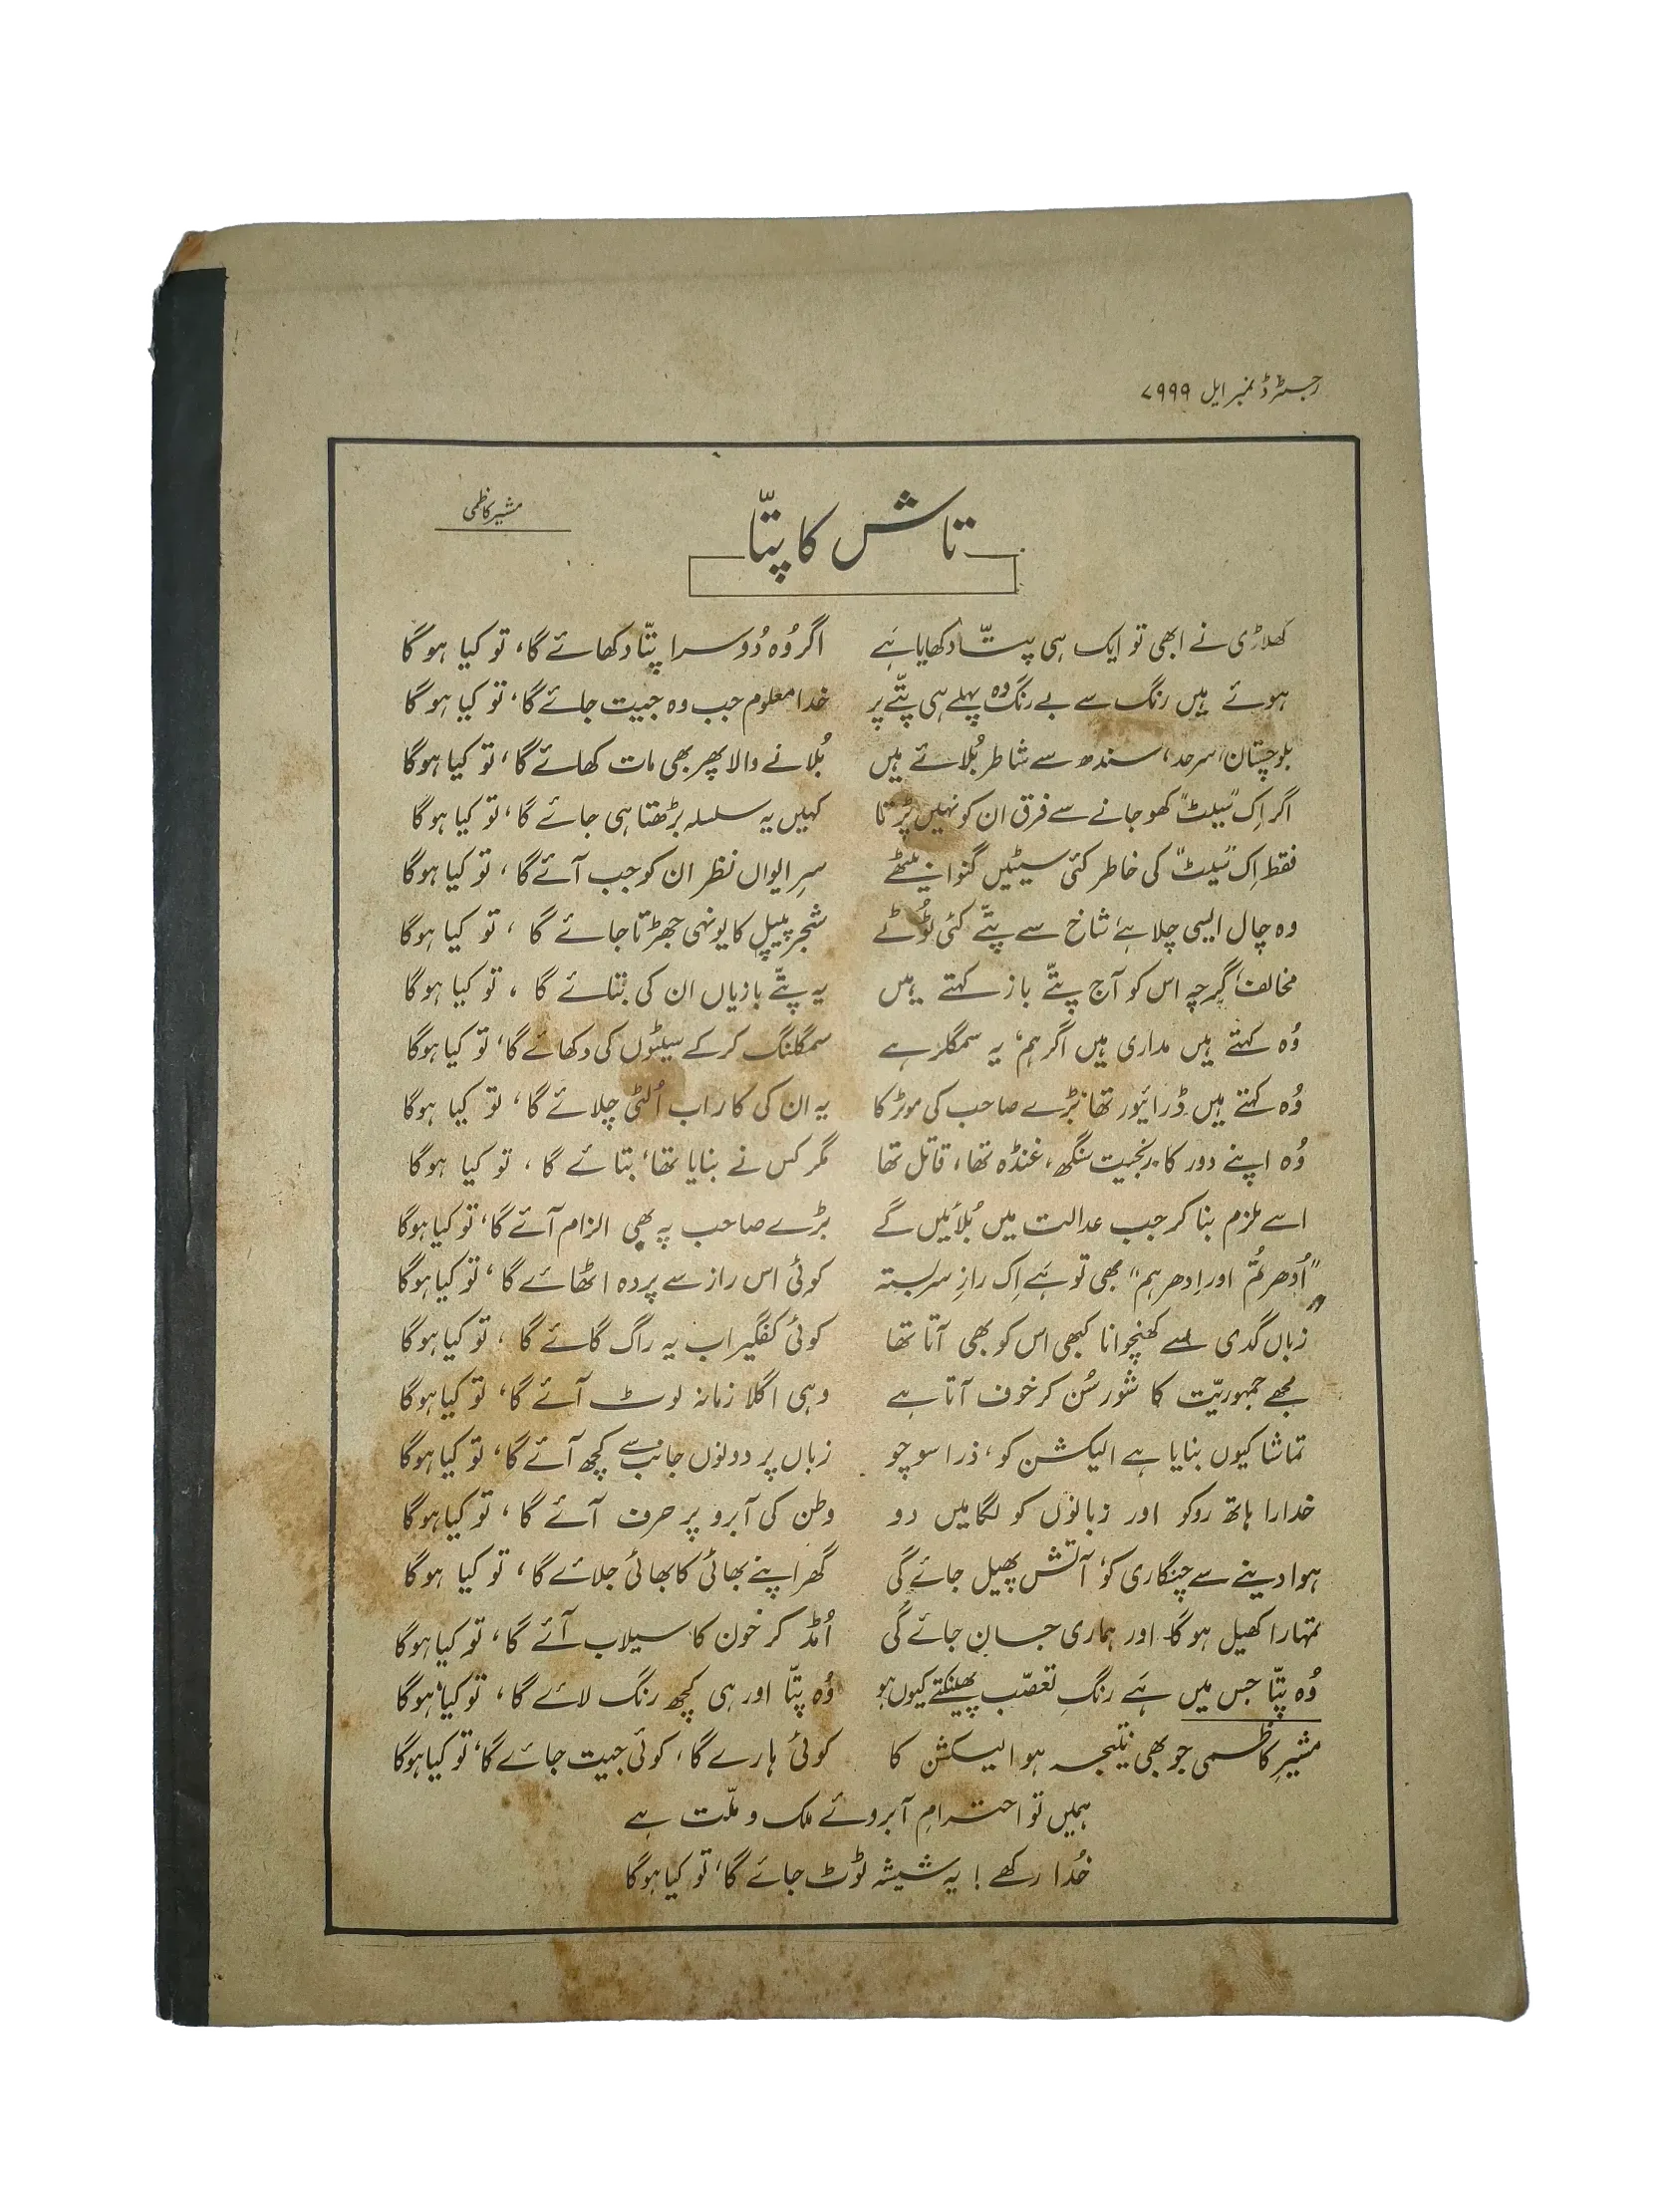 رجسٹرڈ نمبر ایل ۷۹۹۹
تاش کا پتّا
مشیر کاظمی
کھلاڑی نے ابھی تو ایک ہی پتّا دکھایا ہَے اگر وُہ دُوسرا پتّا دکھائے گا، تو کیا ہو گا
ہوئے ہیں رنگ سے بے رنگ وہ پہلے ہی پتّے پر خدا معلوم جب وہ جیت جائے گا، تو کیا ہو گا
بلوچستان، سرحد، سندھ سے شاطر بُلائے ہیں بُلانے والا پھر بھی مات کھائے گا، تو کیا ہوگا
اگر اِک "سیٹ" کھو جانے سے فرق ان کو نہیں پڑتا کہیں یہ سلسلہ بڑھتا ہی جائے گا، تو کیا ہو گا
فقط اِک "سیٹ" کی خاطر کئی سیٹیں گنوا بیٹھے سرِ ایواں نظر ان کو جب آئے گا، تو کیا ہوگا
وہ چال ایسی چلا ہے شاخ سے پتّے کئی ٹُوٹے شجر پیپل کا یونہی جھڑتا جائے گا، تو کیا ہوگا
مخالف گرچہ اس کو آج پتّے باز کہتے ہیں یہ پتّے بازیاں ان کی بتائے گا، تو کیا ہوگا
وُہ کہتے ہیں مداری ہیں اگر ہم، یہ سمگلر ہے سمگلنگ کر کے سیٹوں کی دکھائے گا، تو کیا ہوگا
وُہ کہتے ہیں ڈرائیور تھا بڑے صاحب کی موٹر کا یہ ان کی کار اب اُلٹی چلائے گا، تو کیا ہوگا
وُہ اپنے دور کا رنجیت سنگھ، غنڈہ تھا، قاتل تھا مگر کس نے بنایا تھا، بتائے گا، تو کیا ہوگا
اسے ملزم بنا کر جب عدالت میں بُلائیں گے بڑے صاحب پہ بھی الزام آئے گا، تو کیا ہوگا
"اُدھر تُم اور اِدھر ہم" بھی تو ہَے اِک رازِ سربستہ کوئی اس راز سے پردہ اٹھائے گا، تو کیا ہوگا
زباں گدی سے کھنچوانا کبھی اس کو بھی آتا تھا کوئی کفگیر اب یہ راگ گائے گا، تو کیا ہوگا
مجھے جمہوریّت کا شور سُن کر خوف آتا ہے وہی اگلا زمانہ لوٹ آئے گا، تو کیا ہوگا
تماشا کیوں بنایا ہے الیکشن کو، ذرا سوچو زباں پر دونوں جانب سے کچھ آئے گا، تو کیا ہوگا
خدارا ہاتھ روکو اور زبانوں کو لگامیں دو وطن کی آبرو پر حرف آئے گا، تو کیا ہوگا
ہوا دینے سے چنگاری کو، آتش پھیل جائے گی گھر اپنے بھائی کا بھائی جلائے گا، تو کیا ہوگا
تمہارا کھیل ہو گا اور ہماری جان جائے گی اُمڈ کر خون کا سیلاب آئے گا، تو کیا ہوگا
وُہ پتّا جس میں ہَے رنگِ تعصّب پھینکتے کیوں ہو وُہ پتّا اور ہی کچھ رنگ لائے گا، تو کیا ہوگا
مشیرِ کاظمی جو بھی نتیجہ ہو الیکشن کا کوئی ہارے گا، کوئی جیت جائے گا، تو کیا ہوگا
ہمیں تو احترامِ آبروئے ملک و ملّت ہے
خُدا رکھے ! یہ شیشہ ٹوٹ جائے گا، تو کیا ہوگا